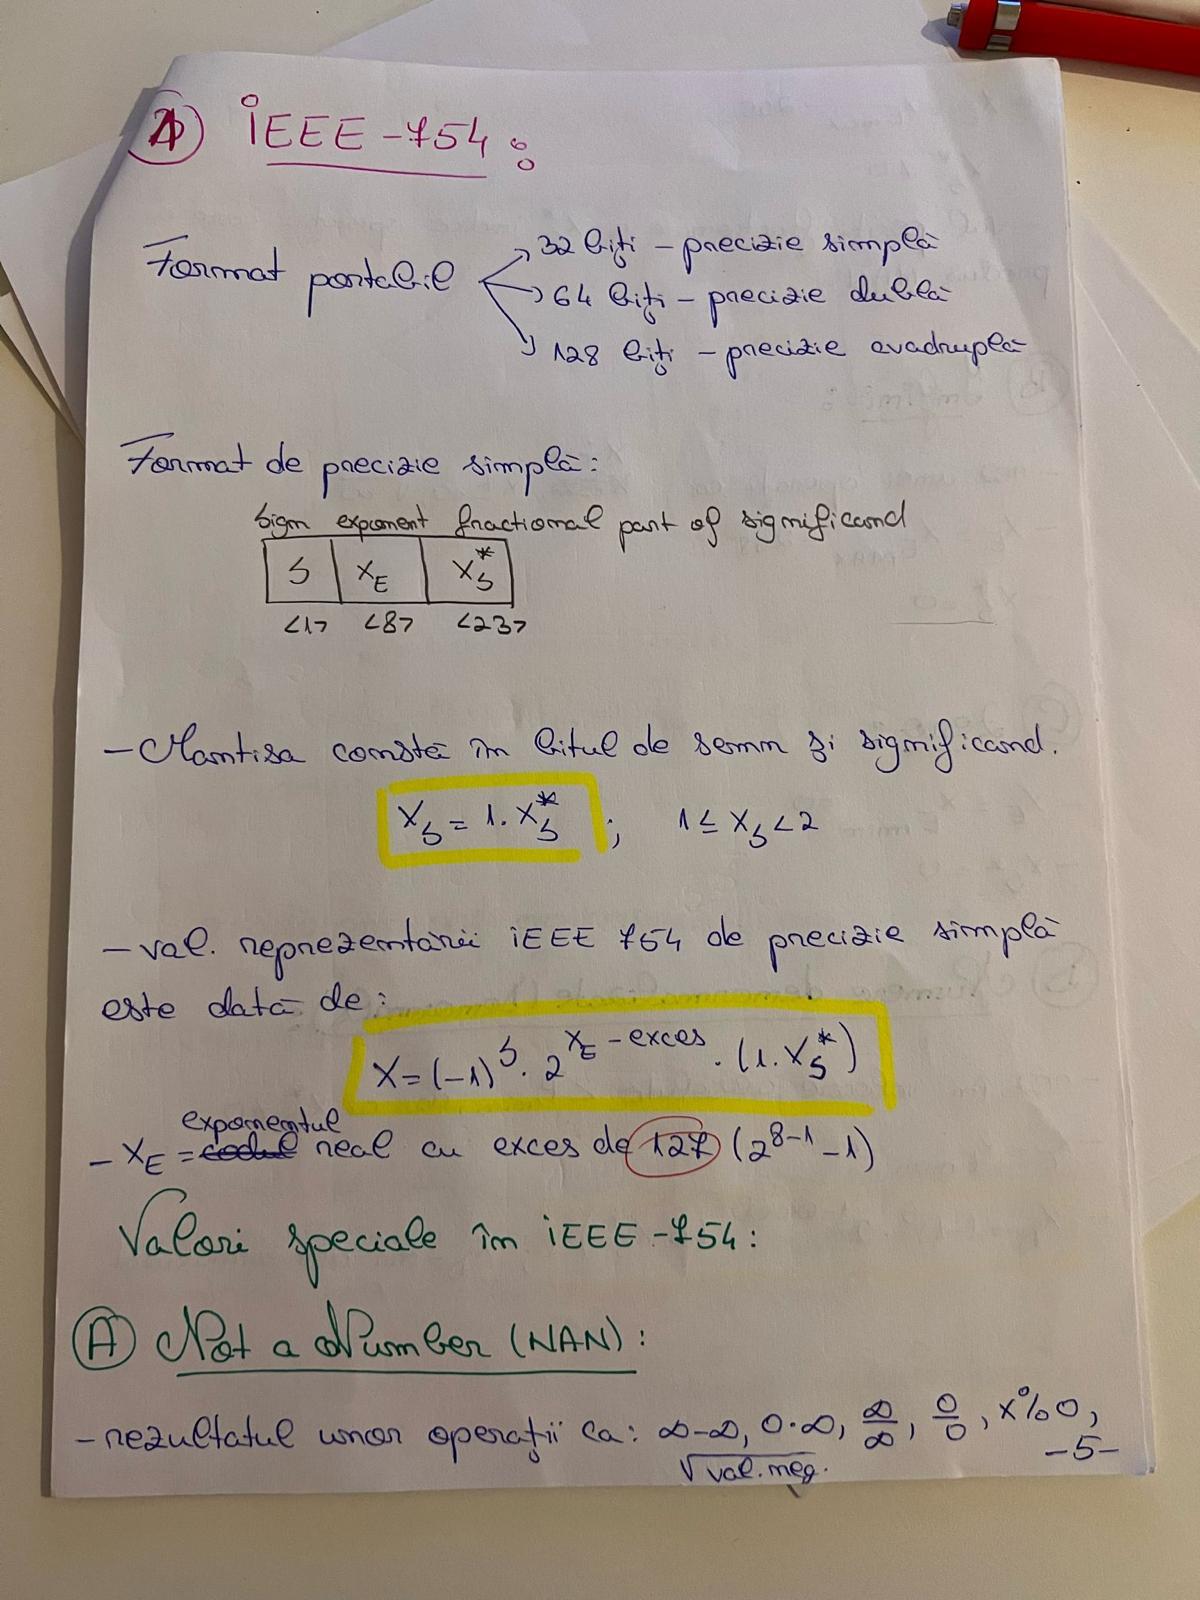 1) IEEE-754:
Format portabil → 32 biți - precizie simplă
→ 64 biți - precizie dublă
→ 128 biți - precizie cvadruplă
Format de precizie simplă:
Sign exponent fractional part of significand
S X_E X_S*
<1> <8> <23>
- Mantisa constă în bitul de semn și significand.
X_S = 1.X_S* ; 1 ≤ X_S < 2
- val. reprezentării IEEE 754 de precizie simplă
este dată de:
X = (-1)^S · 2^(X_E - exces) · (1.X_S*)
exponentul
- X_E = codul real cu exces de 127 (2^(8-1) - 1)
Valori speciale în IEEE-754:
A) Not a Number (NAN):
- rezultatul unor operații ca: ∞-∞, 0·∞, ∞/∞, 0/0, x%0,
√val.neg.
-5-